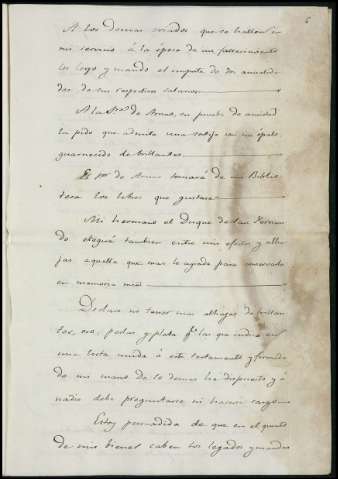 6
A los demas criados que se hallen en
mi servicio á la época de mi fallecimiento
les lego y mando el importe de dos anualida
des de sus respectivos salarios
A la Sra. de Arnao, en prueba de amistad
la pido que admita una sortija con un ópalo
guarnecido de brillantes
El Sr. de Arnao tomará de mi Biblio
teca los libros que gustare
Mi hermano el Duque de San Fernan
do elegirá tambien entre mis efectos y alha
jas aquella que mas le agrade para conservarlo
en memoria mia
Declaro no tener mas alhajas de brillan
tes, oro, perlas y plata qe. las que indica en
una lista unida á este testamento y firmada
de mi mano de lo demas he dispuesto y á
nadie debe preguntarse ni hacerse cargo
Estoy persuadida de que en el quinto
de mis bienes caben los legados y mandas